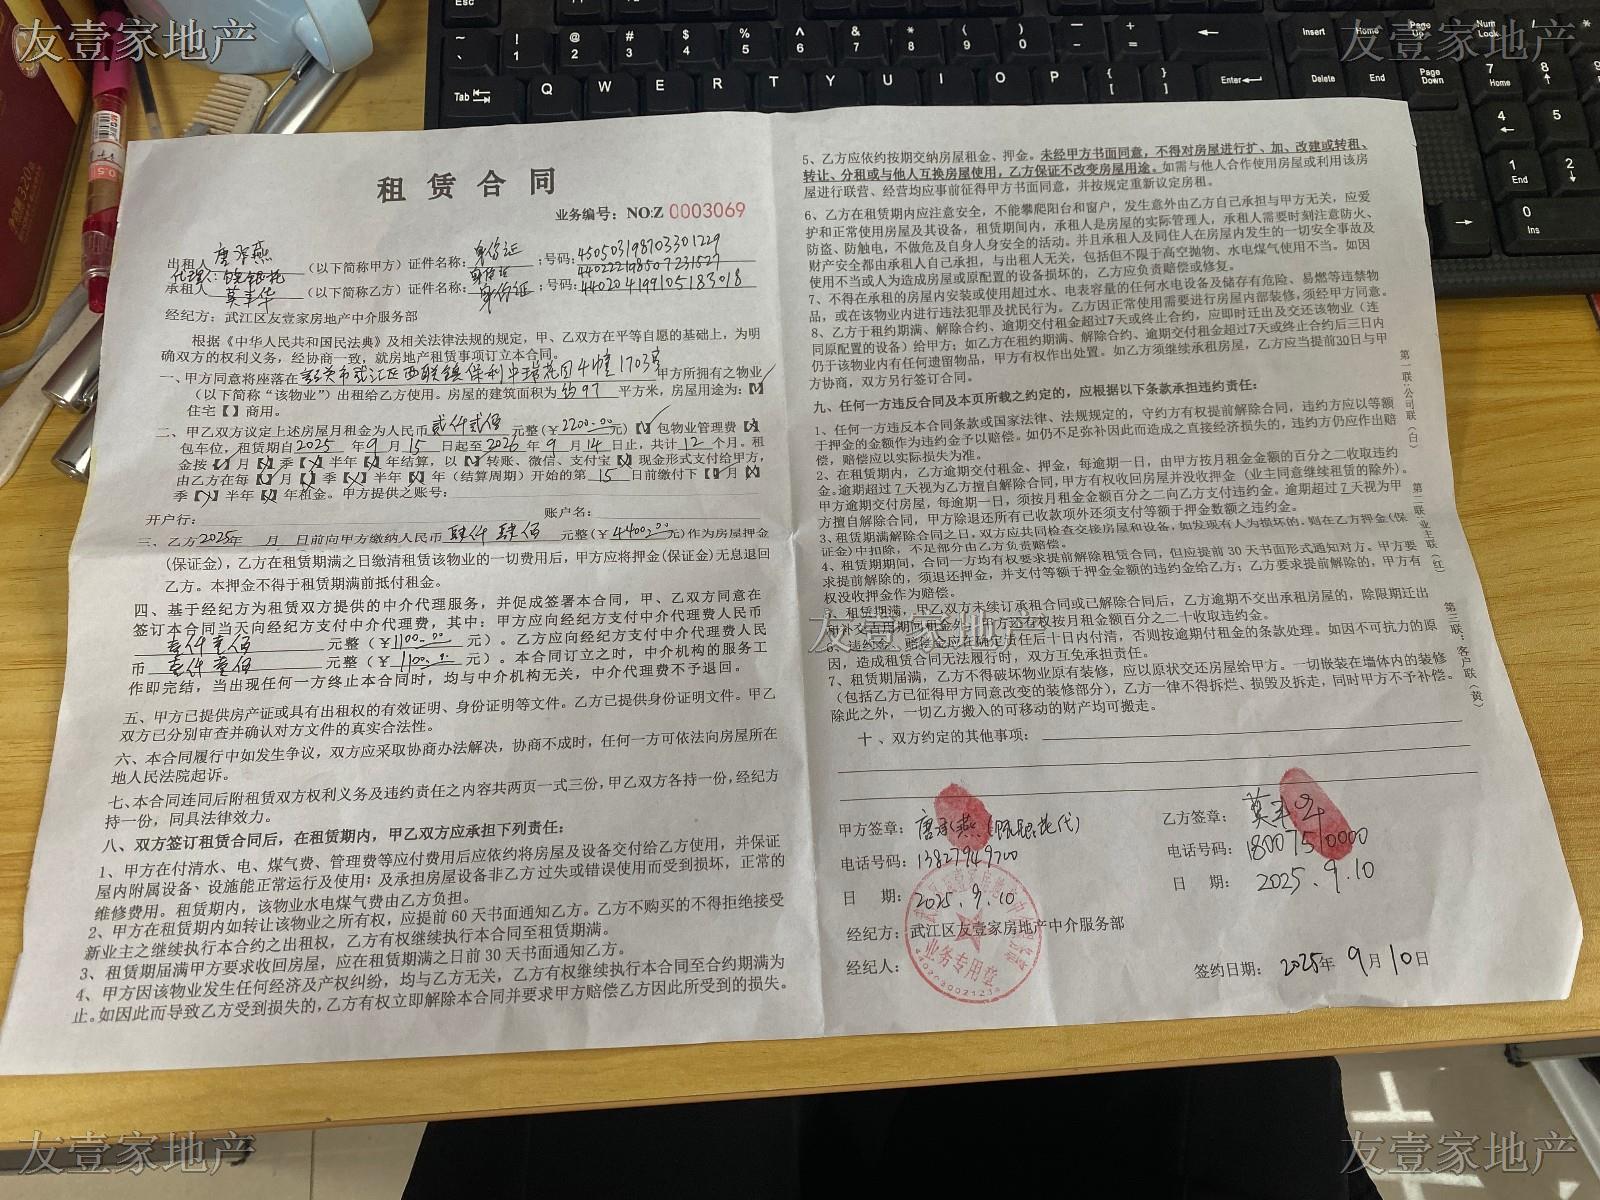 友壹家地产
友壹家地产
租赁合同
业务编号：NO:Z 0003069
出租人 （以下简称甲方）证件名称：身份证；号码：450503198703301229
代理人： 身份证 440222198507231527
承租人 莫丰华（以下简称乙方）证件名称：身份证；号码：440204199105183018
经纪方：武江区友壹家房地产中介服务部
根据《中华人民共和国民法典》及相关法律法规的规定，甲、乙双方在平等自愿的基础上，为明
确双方的权利义务，经协商一致，就房地产租赁事项订立本合同。
一、甲方同意将座落在韶关市武江区西联镇保利中瑞花园4幢1703房甲方所拥有之物业
（以下简称“该物业”）出租给乙方使用。房屋的建筑面积为 约97 平方米，房屋用途为：【√】
住宅【】商用。
二、甲乙双方议定上述房屋月租金为人民币 贰仟贰佰 元整（￥2200.00元）【√】包物业管理费【】
包车位，租赁期自2025年9月15日起至2026年9月14日止，共计12个月。租
金按【√】月【】季【】半年【】年结算，以【√】转账、微信、支付宝【】现金形式支付给甲方，
由乙方在每【√】月【】季【】半年【】年（结算周期）开始的第15日前缴付下【√】月【】
季【】半年【】年租金。甲方提供之账号：
开户行： 账户名：
三、乙方2025年 月 日前向甲方缴纳人民币 肆仟肆佰 元整（￥4400.00元）作为房屋押金
（保证金），乙方在租赁期满之日缴清租赁该物业的一切费用后，甲方应将押金（保证金）无息退回
乙方。本押金不得于租赁期满前抵付租金。
四、基于经纪方为租赁双方提供的中介代理服务，并促成签署本合同，甲、乙双方同意在
签订本合同当天向经纪方支付中介代理费，其中：甲方应向经纪方支付中介代理费人民币
壹仟壹佰 元整（￥1100.00元）。乙方应向经纪方支付中介代理费人民
币 壹仟壹佰 元整（￥1100.00元）。本合同订立之时，中介机构的服务工
作即完结，当出现任何一方终止本合同时，均与中介机构无关，中介代理费不予退回。
五、甲方已提供房产证或具有出租权的有效证明、身份证明等文件。乙方已提供身份证明文件。甲乙
双方已分别审查并确认对方文件的真实合法性。
六、本合同履行中如发生争议，双方应采取协商办法解决，协商不成时，任何一方可依法向房屋所在
地人民法院起诉。
七、本合同连同后附租赁双方权利义务及违约责任之内容共两页一式三份，甲乙双方各持一份，经纪方
持一份，同具法律效力。
八、双方签订租赁合同后，在租赁期内，甲乙双方应承担下列责任：
1、甲方在付清水、电、煤气费、管理费等应付费用后应依约将房屋及设备交付给乙方使用，并保证
屋内附属设备、设施能正常运行及使用；及承担房屋设备非乙方过失或错误使用而受到损坏，正常的
维修费用。租赁期内，该物业水电煤气费由乙方负担。
2、甲方在租赁期内如转让该物业之所有权，应提前60天书面通知乙方。乙方不购买的不得拒绝接受
新业主之继续执行本合约之出租权，乙方有权继续执行本合同至租赁期满。
3、租赁期届满甲方要求收回房屋，应在租赁期满之日前30天书面通知乙方。
4、甲方因该物业发生任何经济及产权纠纷，均与乙方无关，乙方有权继续执行本合同至合约期满为
止。如因此而导致乙方受到损失的，乙方有权立即解除本合同并要求甲方赔偿乙方因此所受到的损失。
5、乙方应依约按期交纳房屋租金、押金。未经甲方书面同意，不得对房屋进行扩、加、改建或转租、
转让、分租或与他人互换房屋使用，乙方保证不改变房屋用途。如需与他人合作使用房屋或利用该房
屋进行联营、经营均应事前征得甲方书面同意，并按规定重新议定房租。
6、乙方在租赁期内应注意安全，不能攀爬阳台和窗户，发生意外由乙方自己承担与甲方无关，应爱
护和正常使用房屋及其设备，租赁期间内，承租人是房屋的实际管理人，承租人需要时刻注意防火、
防盗、防触电，不做危及自身人身安全的活动。并且承租人及同住人在房屋内发生的一切安全事故及
财产安全都由承租人自己承担，与出租人无关，包括但不限于高空抛物、水电煤气使用不当。如因
使用不当或人为造成房屋或原配置的设备损坏的，乙方应负责赔偿或修复。
7、不得在承租的房屋内安装或使用超过水、电表容量的任何水电设备及储存有危险、易燃等违禁物
品，或在该物业内进行违法犯罪及扰民行为。乙方因正常使用需要进行房屋内部装修，须经甲方同意。
8、乙方于租约期满、解除合约、逾期交付租金超过7天或终止合约，应即时迁出及交还该物业（连
同原配置的设备）给甲方；如乙方在租约期满、解除合约、逾期交付租金超过7天或终止合约后三日内
仍于该物业内有任何遗留物品，甲方有权作出处置。如乙方须继续承租房屋，乙方应当提前30日与甲
方协商，双方另行签订合同。
九、任何一方违反合同及本页所载之约定的，应根据以下条款承担违约责任：
1、任何一方违反本合同条款或国家法律、法规规定的，守约方有权提前解除合同，违约方应以等额
于押金的金额作为违约金予以赔偿。如仍不足弥补因此而造成之直接经济损失的，违约方仍应作出赔
偿，赔偿应以实际损失为准。
2、在租赁期内，乙方逾期交付租金、押金，每逾期一日，由甲方按月租金金额的百分之二收取违约
金。逾期超过7天视为乙方擅自解除合同，甲方有权收回房屋并没收押金（业主同意继续租赁的除外）。
甲方逾期交付房屋，每逾期一日，须按月租金金额百分之二向乙方支付违约金。逾期超过7天视为甲
方擅自解除合同，甲方除退还所有已收款项外还须支付等额于押金数额之违约金。
3、租赁期满解除合同之日，双方应共同检查交接房屋和设备，如发现有人为损坏的，则在乙方押金（保
证金）中扣除，不足部分由乙方负责赔偿。
4、租赁期期间，合同一方均有权要求提前解除租赁合同，但应提前30天书面形式通知对方。甲方要
求提前解除的，须退还押金，并支付等额于押金金额的违约金给乙方；乙方要求提前解除的，甲方有
权没收押金作为赔偿。
5、租赁期满，甲乙双方未续订承租合同或已解除合同后，乙方逾期不交出承租房屋的，除限期迁出
和补交占用期间租金外，甲方还有权按月租金额百分之二十收取违约金。
6、违约金、赔偿金应在确定责任后十日内付清，否则按逾期付租金的条款处理。如因不可抗力的原
因，造成租赁合同无法履行时，双方互免承担责任。
7、租赁期届满，乙方不得破坏物业原有装修，应以原状交还房屋给甲方。一切嵌装在墙体内的装修
（包括乙方已征得甲方同意改变的装修部分），乙方一律不得拆烂、损毁及拆走，同时甲方不予补偿。
除此之外，一切乙方搬入的可移动的财产均可搬走。
十、双方约定的其他事项：
甲方签章：
电话号码：13827949700
日 期：2025.9.10
乙方签章：莫丰华
电话号码：18007510000
日 期：2025.9.10
经纪方：武江区友壹家房地产中介服务部
经纪人：
签约日期：2025年9月10日
业务专用章
第一联：公司联（白）
第二联：业主联（红）
第三联：客户联（黄）
友壹家地产
友壹家地产
友壹家地产